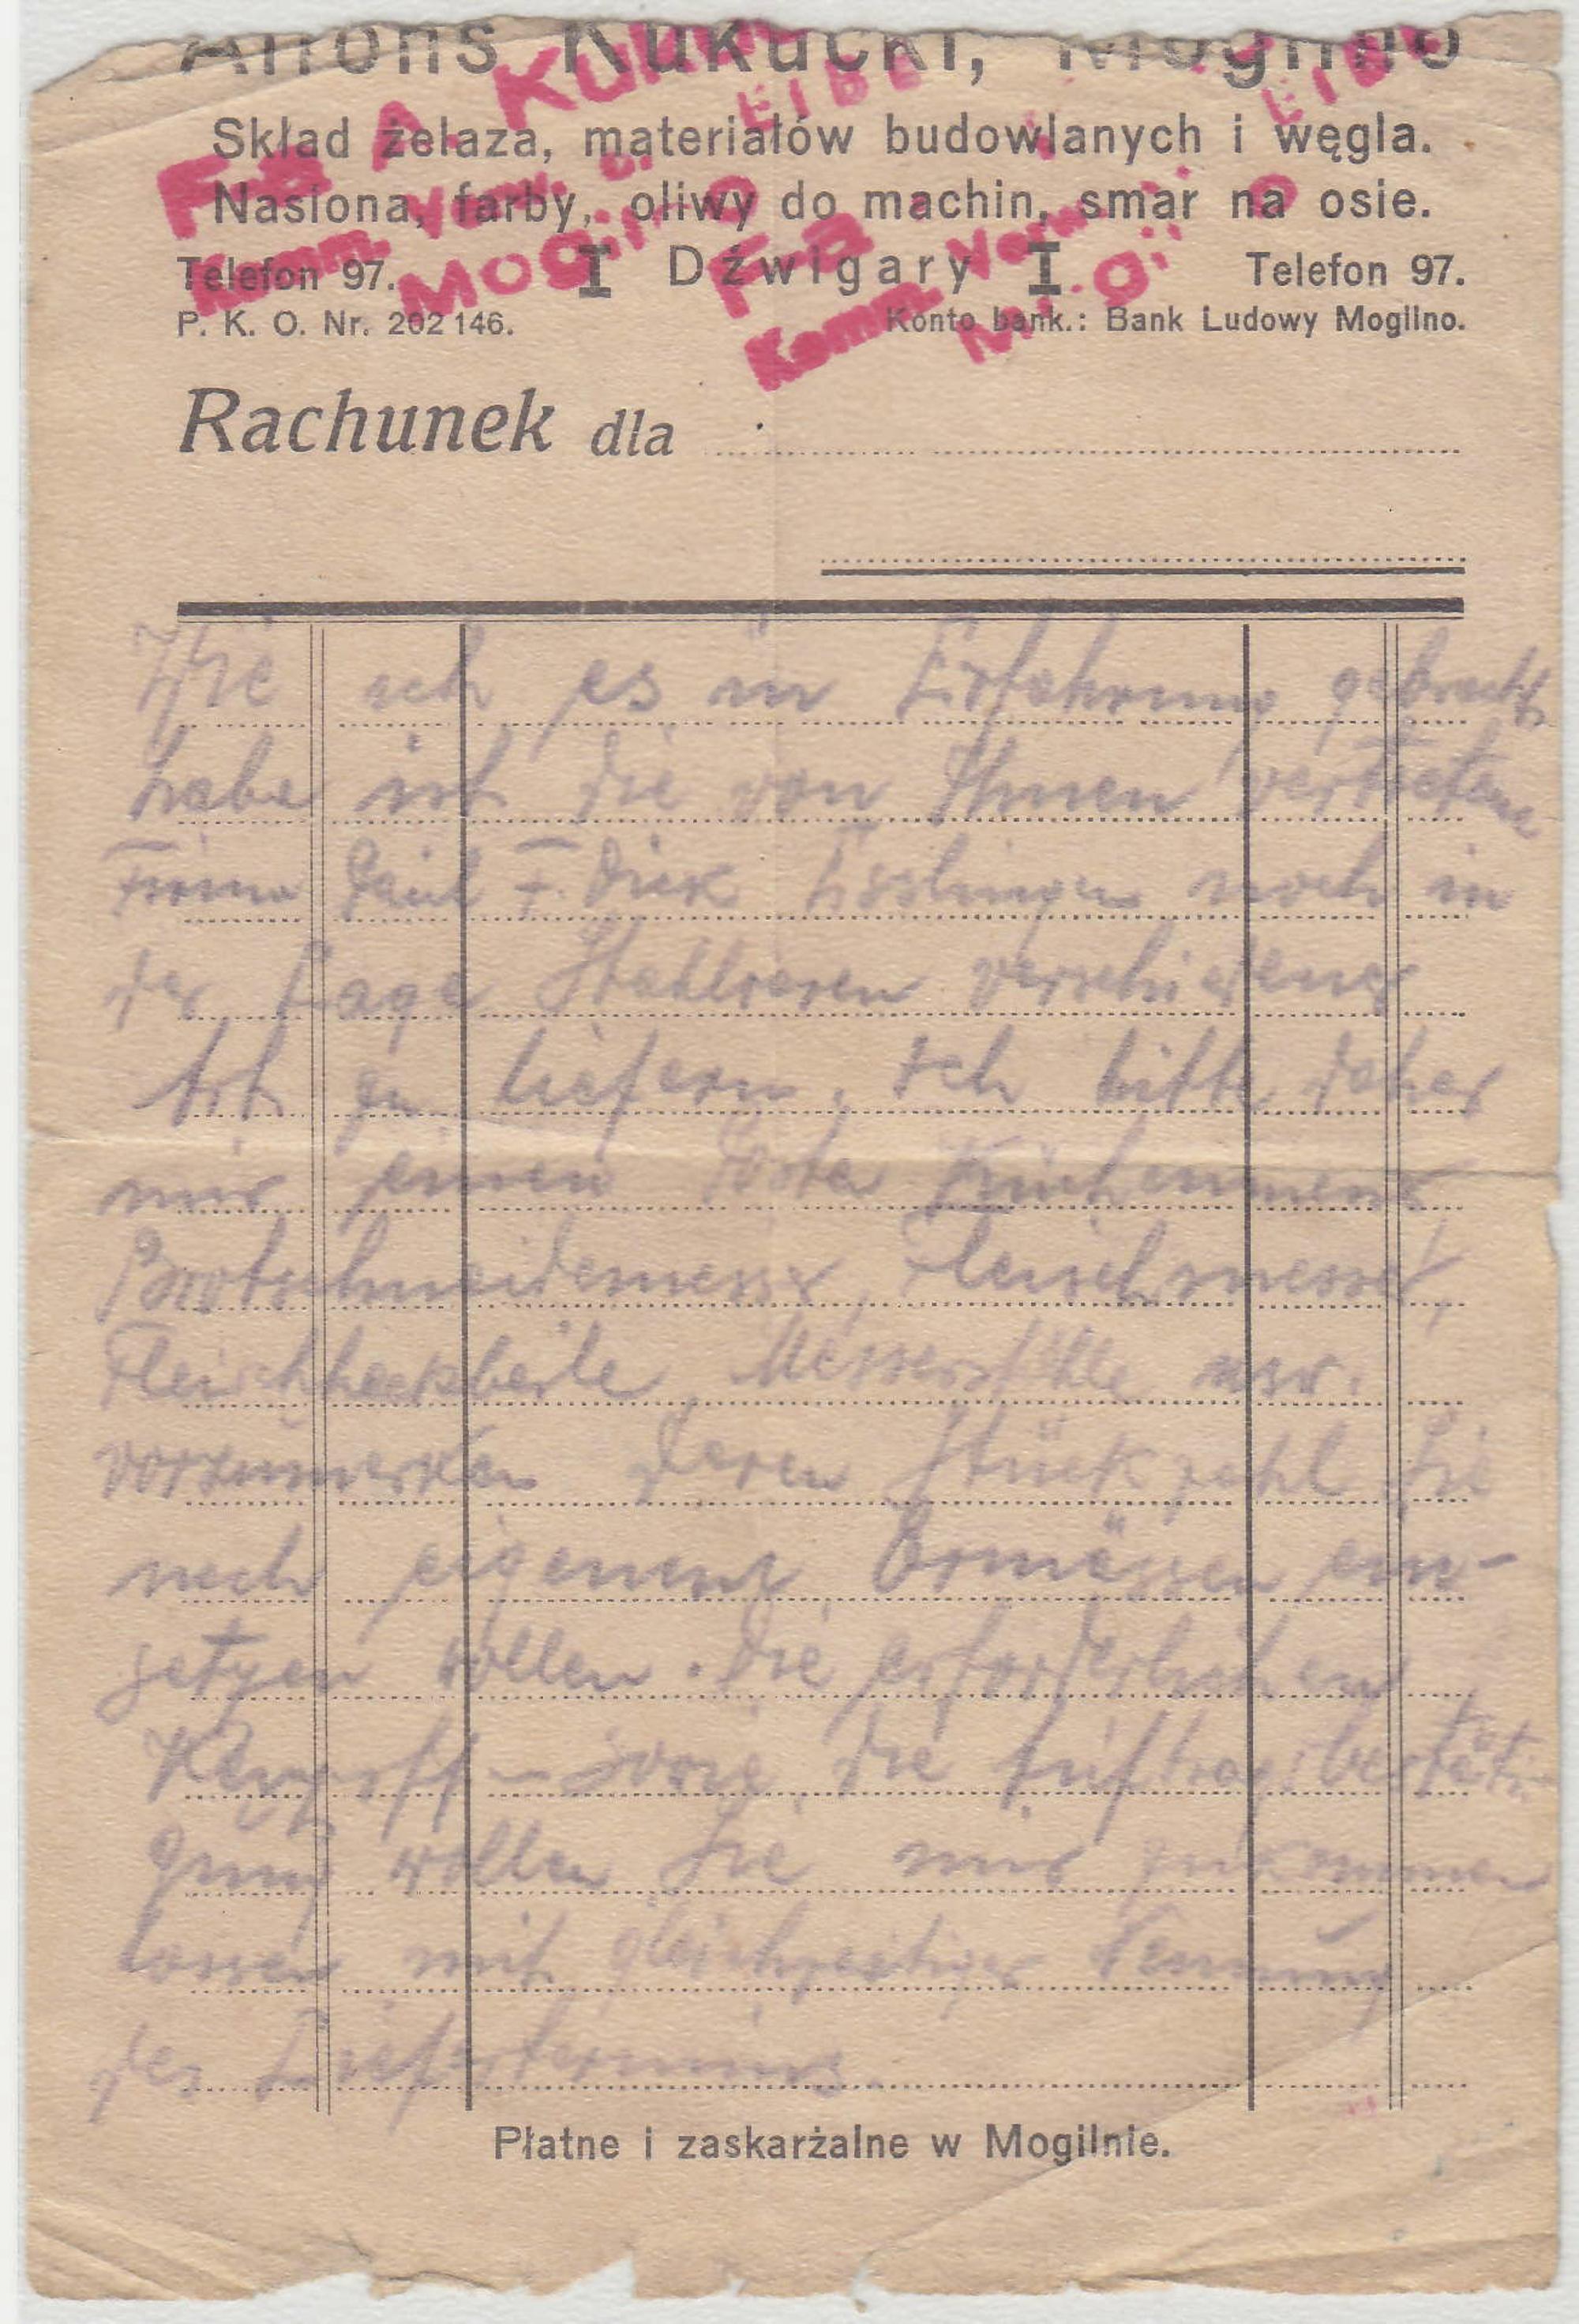 Alfons Kukucki, Mogilno
Skład żelaza, materiałów budowlanych i węgla.
Nasiona, farby, oliwy do machin, smar na osie.
Telefon 97. I Dźwigary I Telefon 97.
P. K. O. Nr. 202146. Konto bank.: Bank Ludowy Mogilno.
Fa A.
Komm. Verw. d.
Mogilno
Fa
Komm. Verw.
Rachunek dla
Wie ich es in Erfahrung gebracht
habe ist die von Ihnen vertretene
Firma Paul F. Dick Esslingen noch in
der Lage Stahlwaren verschiedener
Art zu liefern. Ich bitte daher
mir einen Posten
Brotschneidemesser, Fleischmesser,
Fleischhackbeile, Messerstähle usw.
vorzumerken deren Stückzahl Sie
nach eigenem Ermessen ein-
setzen wollen. Die erforderlichen
sowie die Auftragsbestäti-
gung wollen Sie mir zukommen
lassen mit gleichzeitiger Nennung
des Liefertermins.
Płatne i zaskarżalne w Mogilnie.